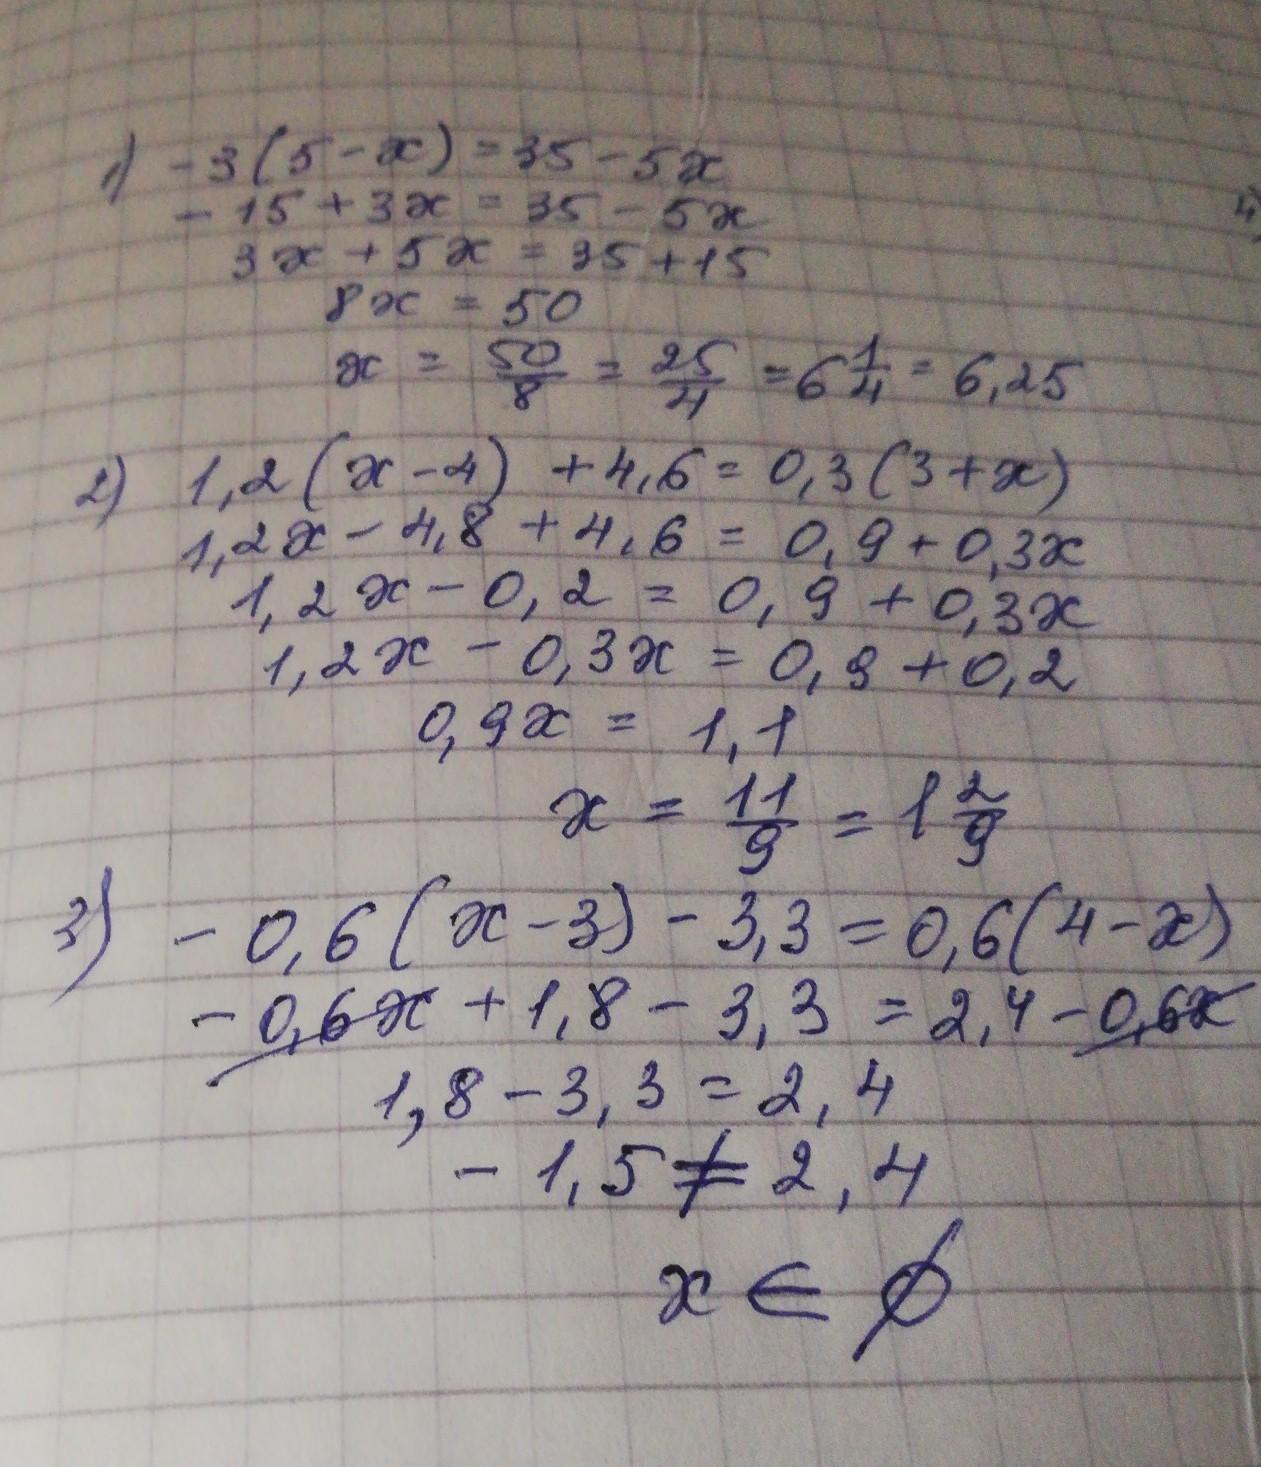 1) -3(5-x)=35-5x
-15+3x=35-5x
3x+5x=35+15
8x=50
x=50/8=25/4=6 1/4=6,25
2) 1,2(x-4)+4,6=0,3(3+x)
1,2x-4,8+4,6=0,9+0,3x
1,2x-0,2=0,9+0,3x
1,2x-0,3x=0,9+0,2
0,9x=1,1
x=11/9=1 2/9
3) -0,6(x-3)-3,3=0,6(4-x)
-0,6x+1,8-3,3=2,4-0,6x
1,8-3,3=2,4
-1,5≠2,4
x∈∅
4)